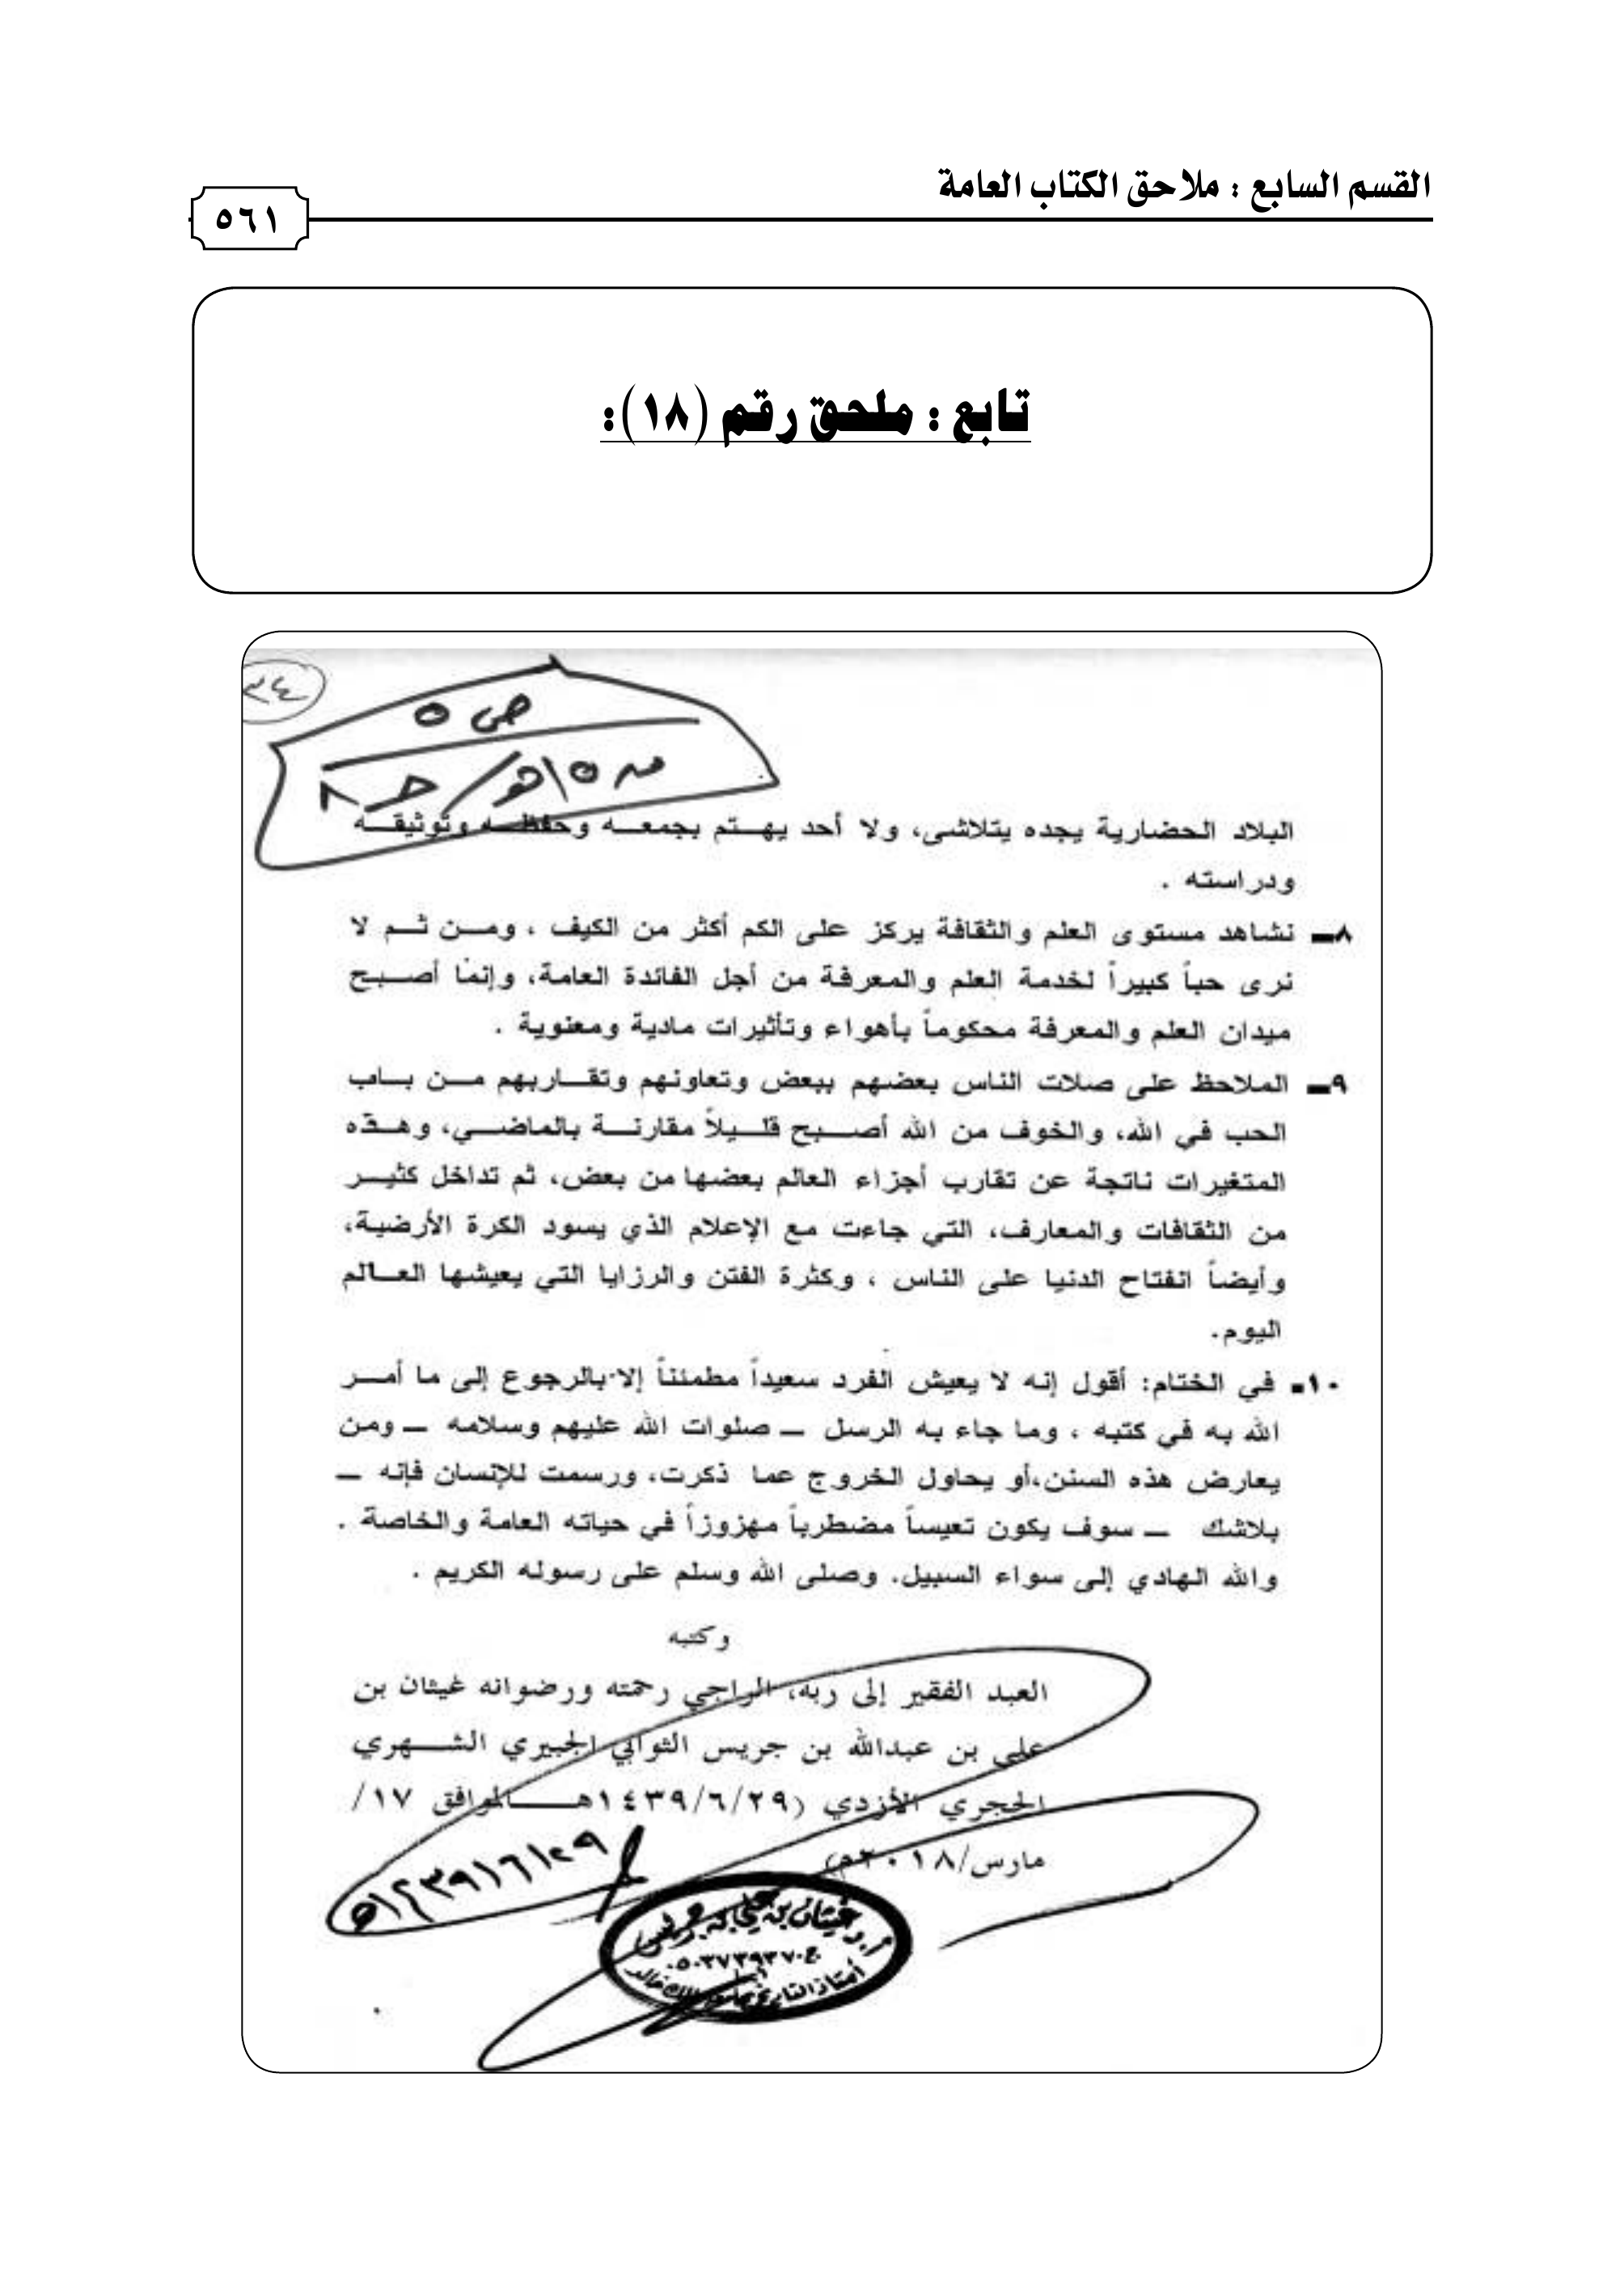 القسم السابع : ملاحق الكتاب العامة
٥٦١
تابع : ملحق رقم (١٨):
٣٤
ص ٥
من ٥ / هو / حـ ٨
البلاد الحضارية يجده يتلاشى، ولا أحد يهـتم بجمعـه وحفظـه وتوثيقـه
ودراسته .
٨ـ نشاهد مستوى العلم والثقافة يركز على الكم أكثر من الكيف ، ومـن ثـم لا
نرى حباً كبيراً لخدمة العلم والمعرفة من أجل الفائدة العامة، وإنما أصـبح
ميدان العلم والمعرفة محكوماً بأهواء وتأثيرات مادية ومعنوية .
٩ـ الملاحظ على صلات الناس بعضهم ببعض وتعاونهم وتقـاربهم مـن بـاب
الحب في الله، والخوف من الله أصـبح قلـيلاً مقارنـة بالماضـي، وهـذه
المتغيرات ناتجة عن تقارب أجزاء العالم بعضها من بعض، ثم تداخل كثيـر
من الثقافات والمعارف، التي جاءت مع الإعلام الذي يسود الكرة الأرضية،
وأيضاً انفتاح الدنيا على الناس ، وكثرة الفتن والرزايا التي يعيشها العـالم
اليوم.
١٠ـ في الختام: أقول إنه لا يعيش الفرد سعيداً مطمئناً إلا بالرجوع إلى ما أمـر
الله به في كتبه ، وما جاء به الرسل ــ صلوات الله عليهم وسلامه ــ ومن
يعارض هذه السنن،أو يحاول الخروج عما ذكرت، ورسمت للإنسان فإنه ــ
بلاشك ــ سوف يكون تعيساً مضطرباً مهزوزاً في حياته العامة والخاصة .
والله الهادي إلى سواء السبيل. وصلى الله وسلم على رسوله الكريم .
وكتبه
العبد الفقير إلى ربه، الراجي رحمته ورضوانه غيثان بن
علي بن عبدالله بن جريس الثوابي الجبيري الشـهري
الحجري الأزدي (١٤٣٩/٦/٢٩هـ الموافق ١٧/
مارس/٢٠١٨م)
١٤٣٩/٦/٢٩هـ
أ.د. غيثان بن علي بن جريس
ج.٠٥٠٣٧٣٩٣٧٠
أستاذ التاريخ بجامعة الملك خالد